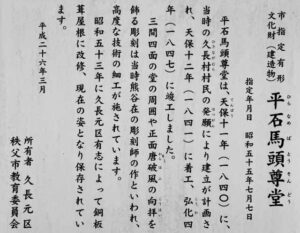 市指定有形
文化財（建造物）
平石馬頭尊堂
ひらなめばとうそんどう
指定年月日　昭和五十五年七月七日
平石馬頭尊堂は、天保十一年（一八四〇）に、
当時の久長村村民の発願により建立が計画さ
れ、天保十二年（一八四一）に着工、弘化四
年（一八四七）に竣工しました。
三間四面の堂の周囲や正面唐破風の向拝を
飾る彫刻は当時熊谷在の彫刻師の作といわれ、
高度な技術の細工が施されています。
昭和五十三年に久長元区有志によって銅板
葺屋根に改修、現在の姿となり保存されてい
ます。
平成二十六年三月
所有者　久長元区
秩父市教育委員会